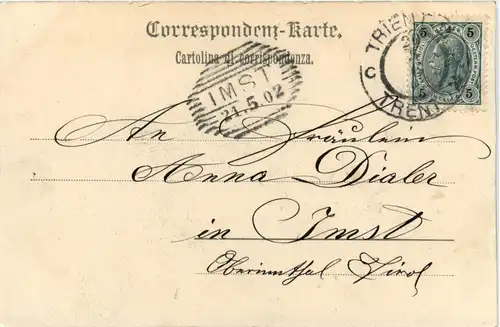 Correspondenz-Karte.
Cartolina di corrispondenza.
TRIENT
C
TRENT
5 5
5 5
IMST
21.5.02
An Fräulein
Anna Dialer
in Imst
Oberinnthal Tirol